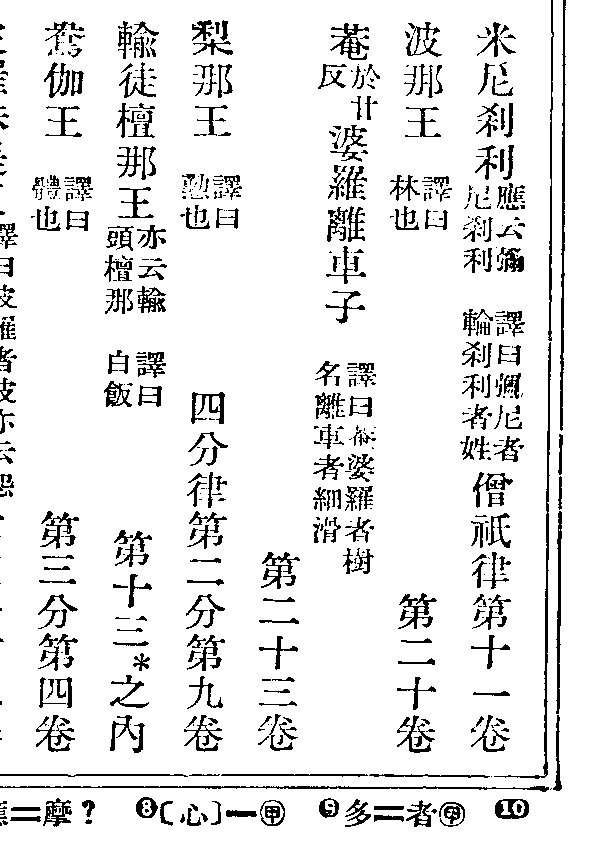 米尼剎利應云彌尼剎利 譯曰彌尼者輪剎利者姓僧祇律第十一卷
波那王譯曰林也 第二十卷
菴於廿反婆羅離車子譯曰菴婆羅者樹名離車者細滑 第二十三卷
梨那王譯曰懃也 四分律第二分第九卷
輸徒檀那王亦云輸頭檀那 譯曰白飯 第十三*之內
鴦伽王譯曰體也 第三分第四卷
譯曰波羅者彼亦云
⑩
⑨多＝者㊥
⑧〔心〕－㊙
＝摩？